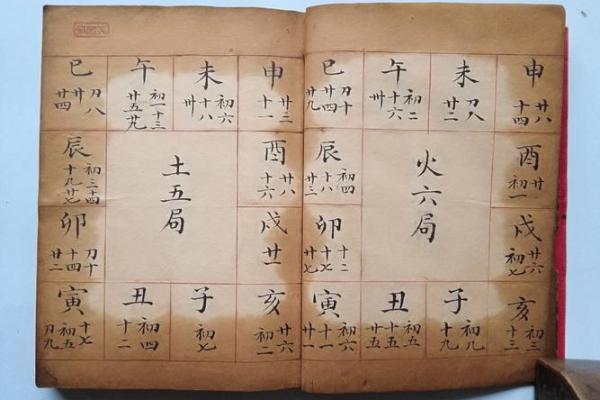 巳
刀八
廿
廿四
午
初一
十三
廿五
廿九
未
初六
十八
卅
申
廿三
十一
辰
初三
十九
廿七
土五局
酉
廿八
十六
卯
刀十
十四
廿二
戌
廿一
寅
十七
初五
刀九
丑
初四
十二
子
初七
亥
廿六
初二
巳
刀十
廿四
廿九
午
初二
十六
卅
未
刀八
廿二
申
廿八
十四
辰
初四
十八
廿三
火六局
酉
廿
初一
卯
十二
十七
廿七
戌
廿六
初七
寅
初六
十一
廿一
丑
初五
十五
廿五
子
初九
十九
亥
初三
十三